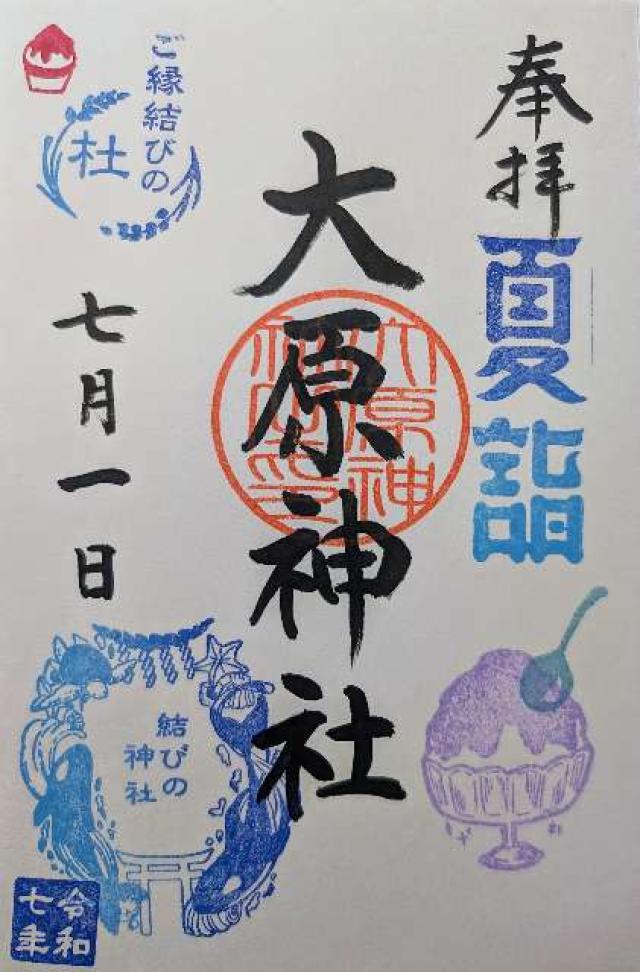 奉拝
夏詣
大原神社
大原神社之印
ご縁結びの
杜
七月一日
結びの
神社
令和
七年